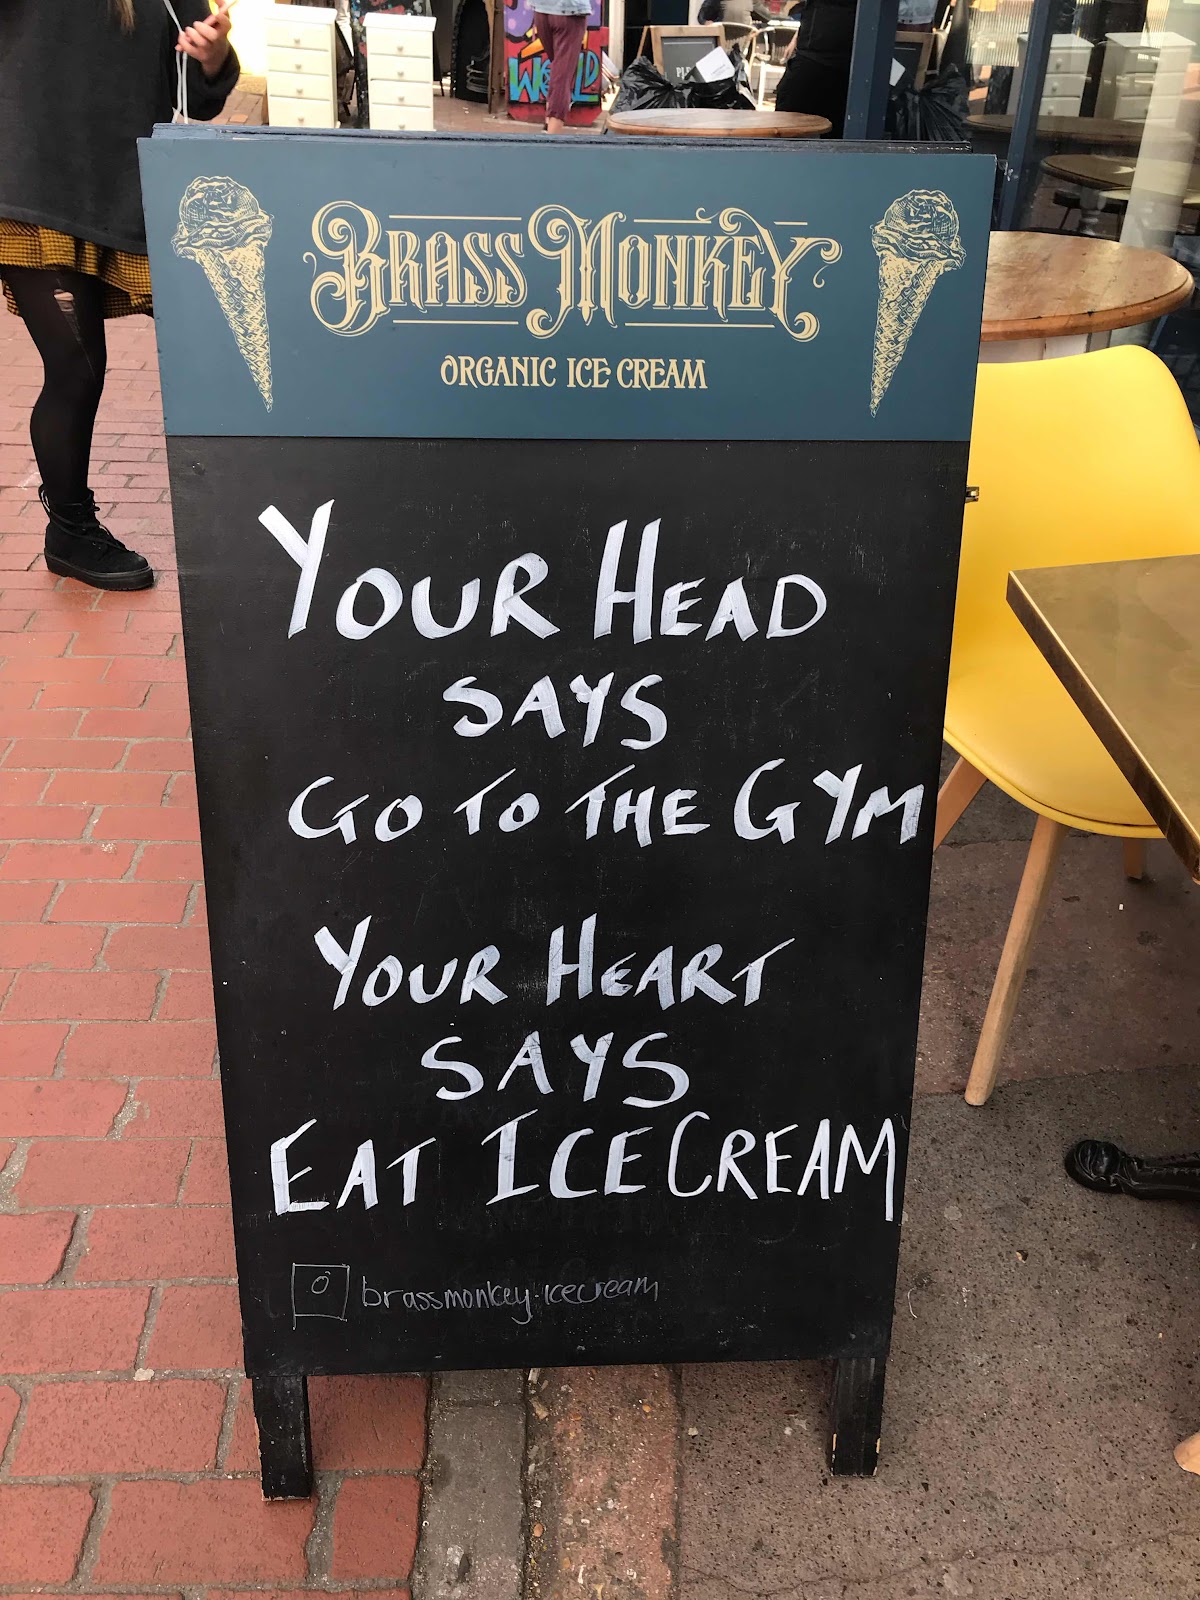 WORLD
BRASS MONKEY
ORGANIC ICE CREAM
YOUR HEAD
SAYS
GO TO THE GYM
YOUR HEART
SAYS
EAT ICE CREAM
brassmonkey.icecream